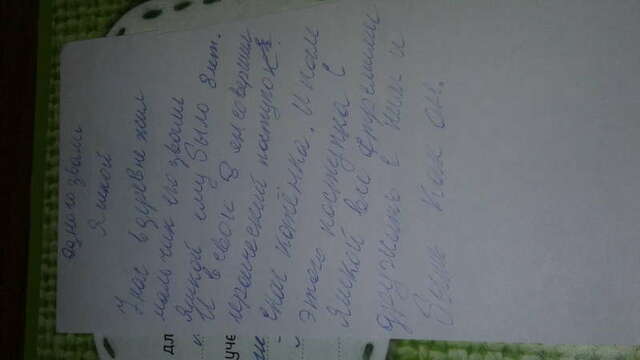 одного звали
Яшкой
У нас в деревне жил
мальчик его звали
Яшкой ему было 8 лет.
И в свои 8 он совершил
героический поступок
спас котёнка. И посл
этого поступка с
Яшкой все стремились
дружить с ним и
быть как он.
дл
уче